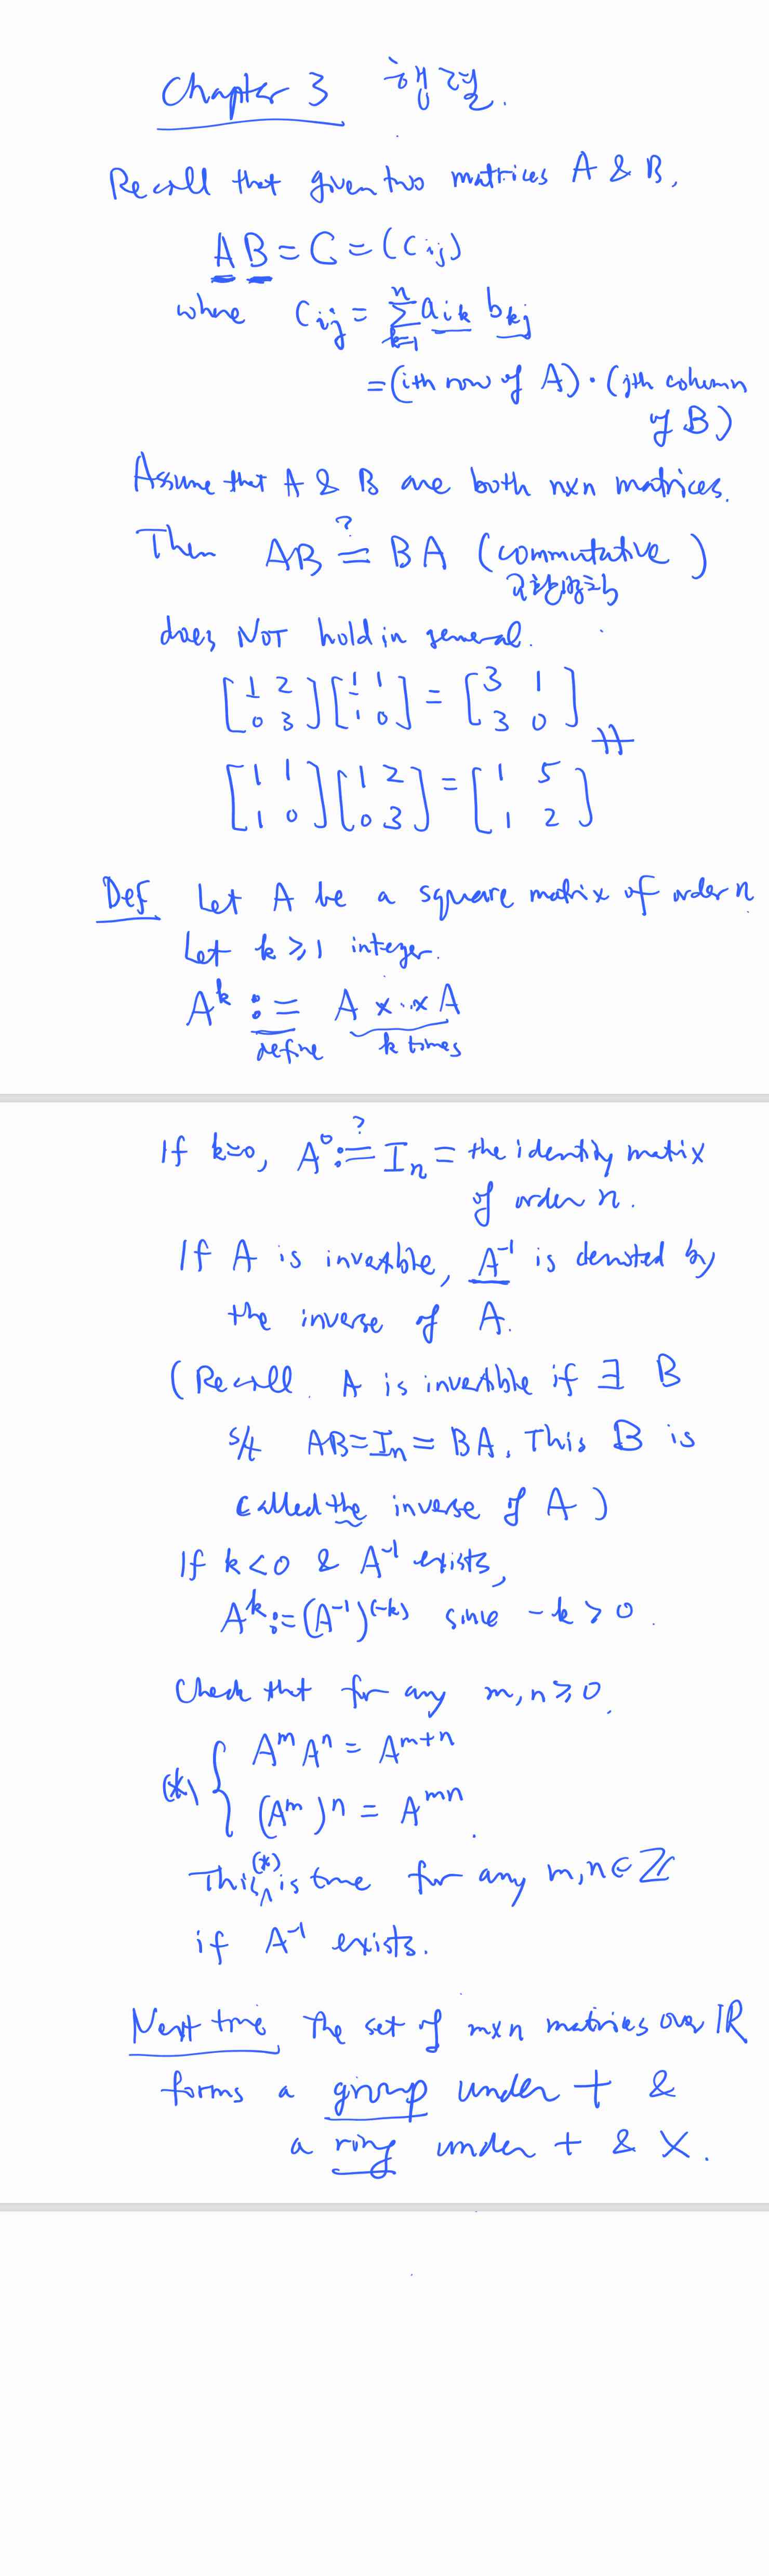 Chapter 3 행렬.
Recall that given two matrices A & B,
AB = C = (c_ij)
where c_ij = Σ_{k=1}^{n} a_ik b_kj
= (ith row of A) · (jth column
of B)
Assume that A & B are both n×n matrices.
Then AB ?= BA (commutative)
교환법칙
does NOT hold in general.
[1 2; 0 3] [1 1; 1 0] = [3 1; 3 0]
≠
[1 1; 1 0] [1 2; 0 3] = [1 5; 1 2]
Def Let A be a square matrix of order n
Let k ≥ 1 integer.
A^k := A × ·· × A
define k times
If k=0, A^0 :?= I_n = the identity matrix
of order n.
If A is invertible, A^-1 is denoted by
the inverse of A.
(Recall. A is invertible if ∃ B
s/t AB = I_n = BA. This B is
called the inverse of A)
If k < 0 & A^-1 exists,
A^k := (A^-1)^(-k) since -k > 0.
Check that for any m, n ≥ 0,
(*) { A^m A^n = A^{m+n}
(A^m)^n = A^{mn}.
This (*) is true for any m, n ∈ ℤ
if A^-1 exists.
Next time The set of m×n matrices over ℝ
forms a group under + &
a ring under + & ×.